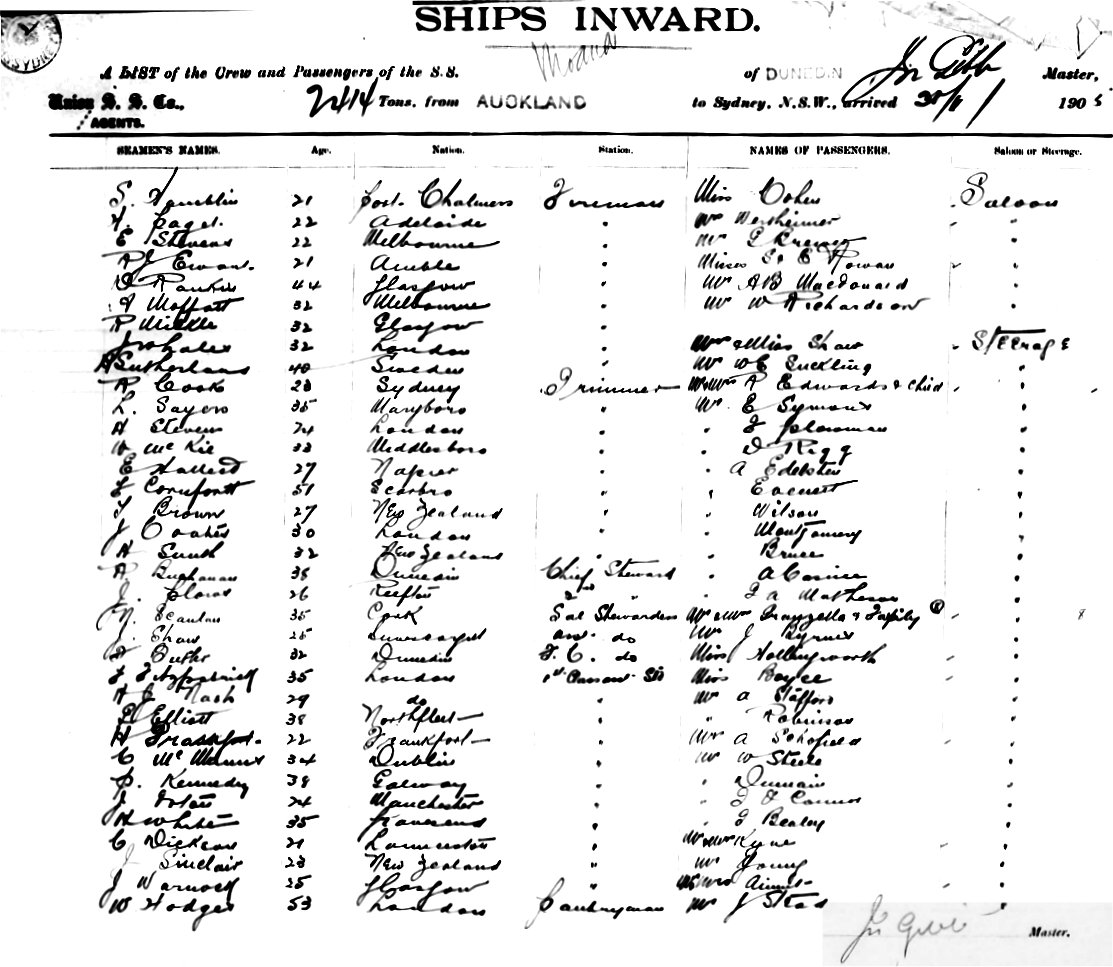 SHIPS INWARD.
Moana
A LIST of the Crew and Passengers of the S.S. of DUNEDIN Jn Gibb Master,
Union S. S. Co., 2414 Tons, from AUCKLAND to Sydney, N.S.W., arrived 1905
AGENTS.
SEAMEN'S NAMES. Age. Nation. Station. NAMES OF PASSENGERS. Saloon or Steerage.
S. Hamblin 21 Port Chalmers Fireman Miss Cohen Saloon
22 Adelaide " Mr Wertheimer "
E Stevens 22 Melbourne " Mr "
A J Ewart 21 Amble " Misses S & E Rowan "
D Rankin 44 Glasgow " Mr A B Macdonald "
A Moffatt 32 Melbourne " Mr W Richardson "
R Mickle 32 Glasgow "
J Whales 32 London " Mrs & Miss Shaw Steerage
A Sutherland 40 Sweden " Mr W E Suckling "
A Cook 23 Sydney Trimmer Mr & Mrs R Edwards & Child "
L. Sayers 35 Maryboro " Mr E Symons "
A Stevens 24 London " " J Plowman "
W McKie 33 Middlesboro " " D Rigg "
E Hallett 27 Napier " " A Edelsten "
F Cornfortt 51 Scarbro " " Earnest "
T Brown 27 New Zealand " " Wilson "
J Coates 30 London " " Montgomery "
A Smith 32 New Zealand " " Bruce "
A Buchanan 38 Dunedin Chief Steward " "
J. 26 Reefton 2nd " " A Matheson "
N. Scanlan 35 Cork Sal Stewardess Mr & Mrs & Family 8
J. Shaw 25 Invercargill asst do Mr J Byrnes "
Butler 32 Dunedin F. C. do Miss Hollingworth "
F Fitzpatrick 35 London Miss Boyce "
A E Nash 29 do " Mr A Stafford "
Elliott 38 Northfleet " " Robinson "
H Frankfort 22 Frankfort " Mrs A Schofield "
C McManus 34 Dublin " Mr W Steele "
P. Kennedy 38 Galway " " "
J 24 Manchester " " J O Connor "
A White 35 " " J Bealey "
C Dickson 21 " Mr & Mrs Kyne "
J Sinclair 23 New Zealand " Mr "
J Warnock 25 Glasgow " "
W Hodges 53 London Pantryman Mr J Stead "
Jn Gibb Master.